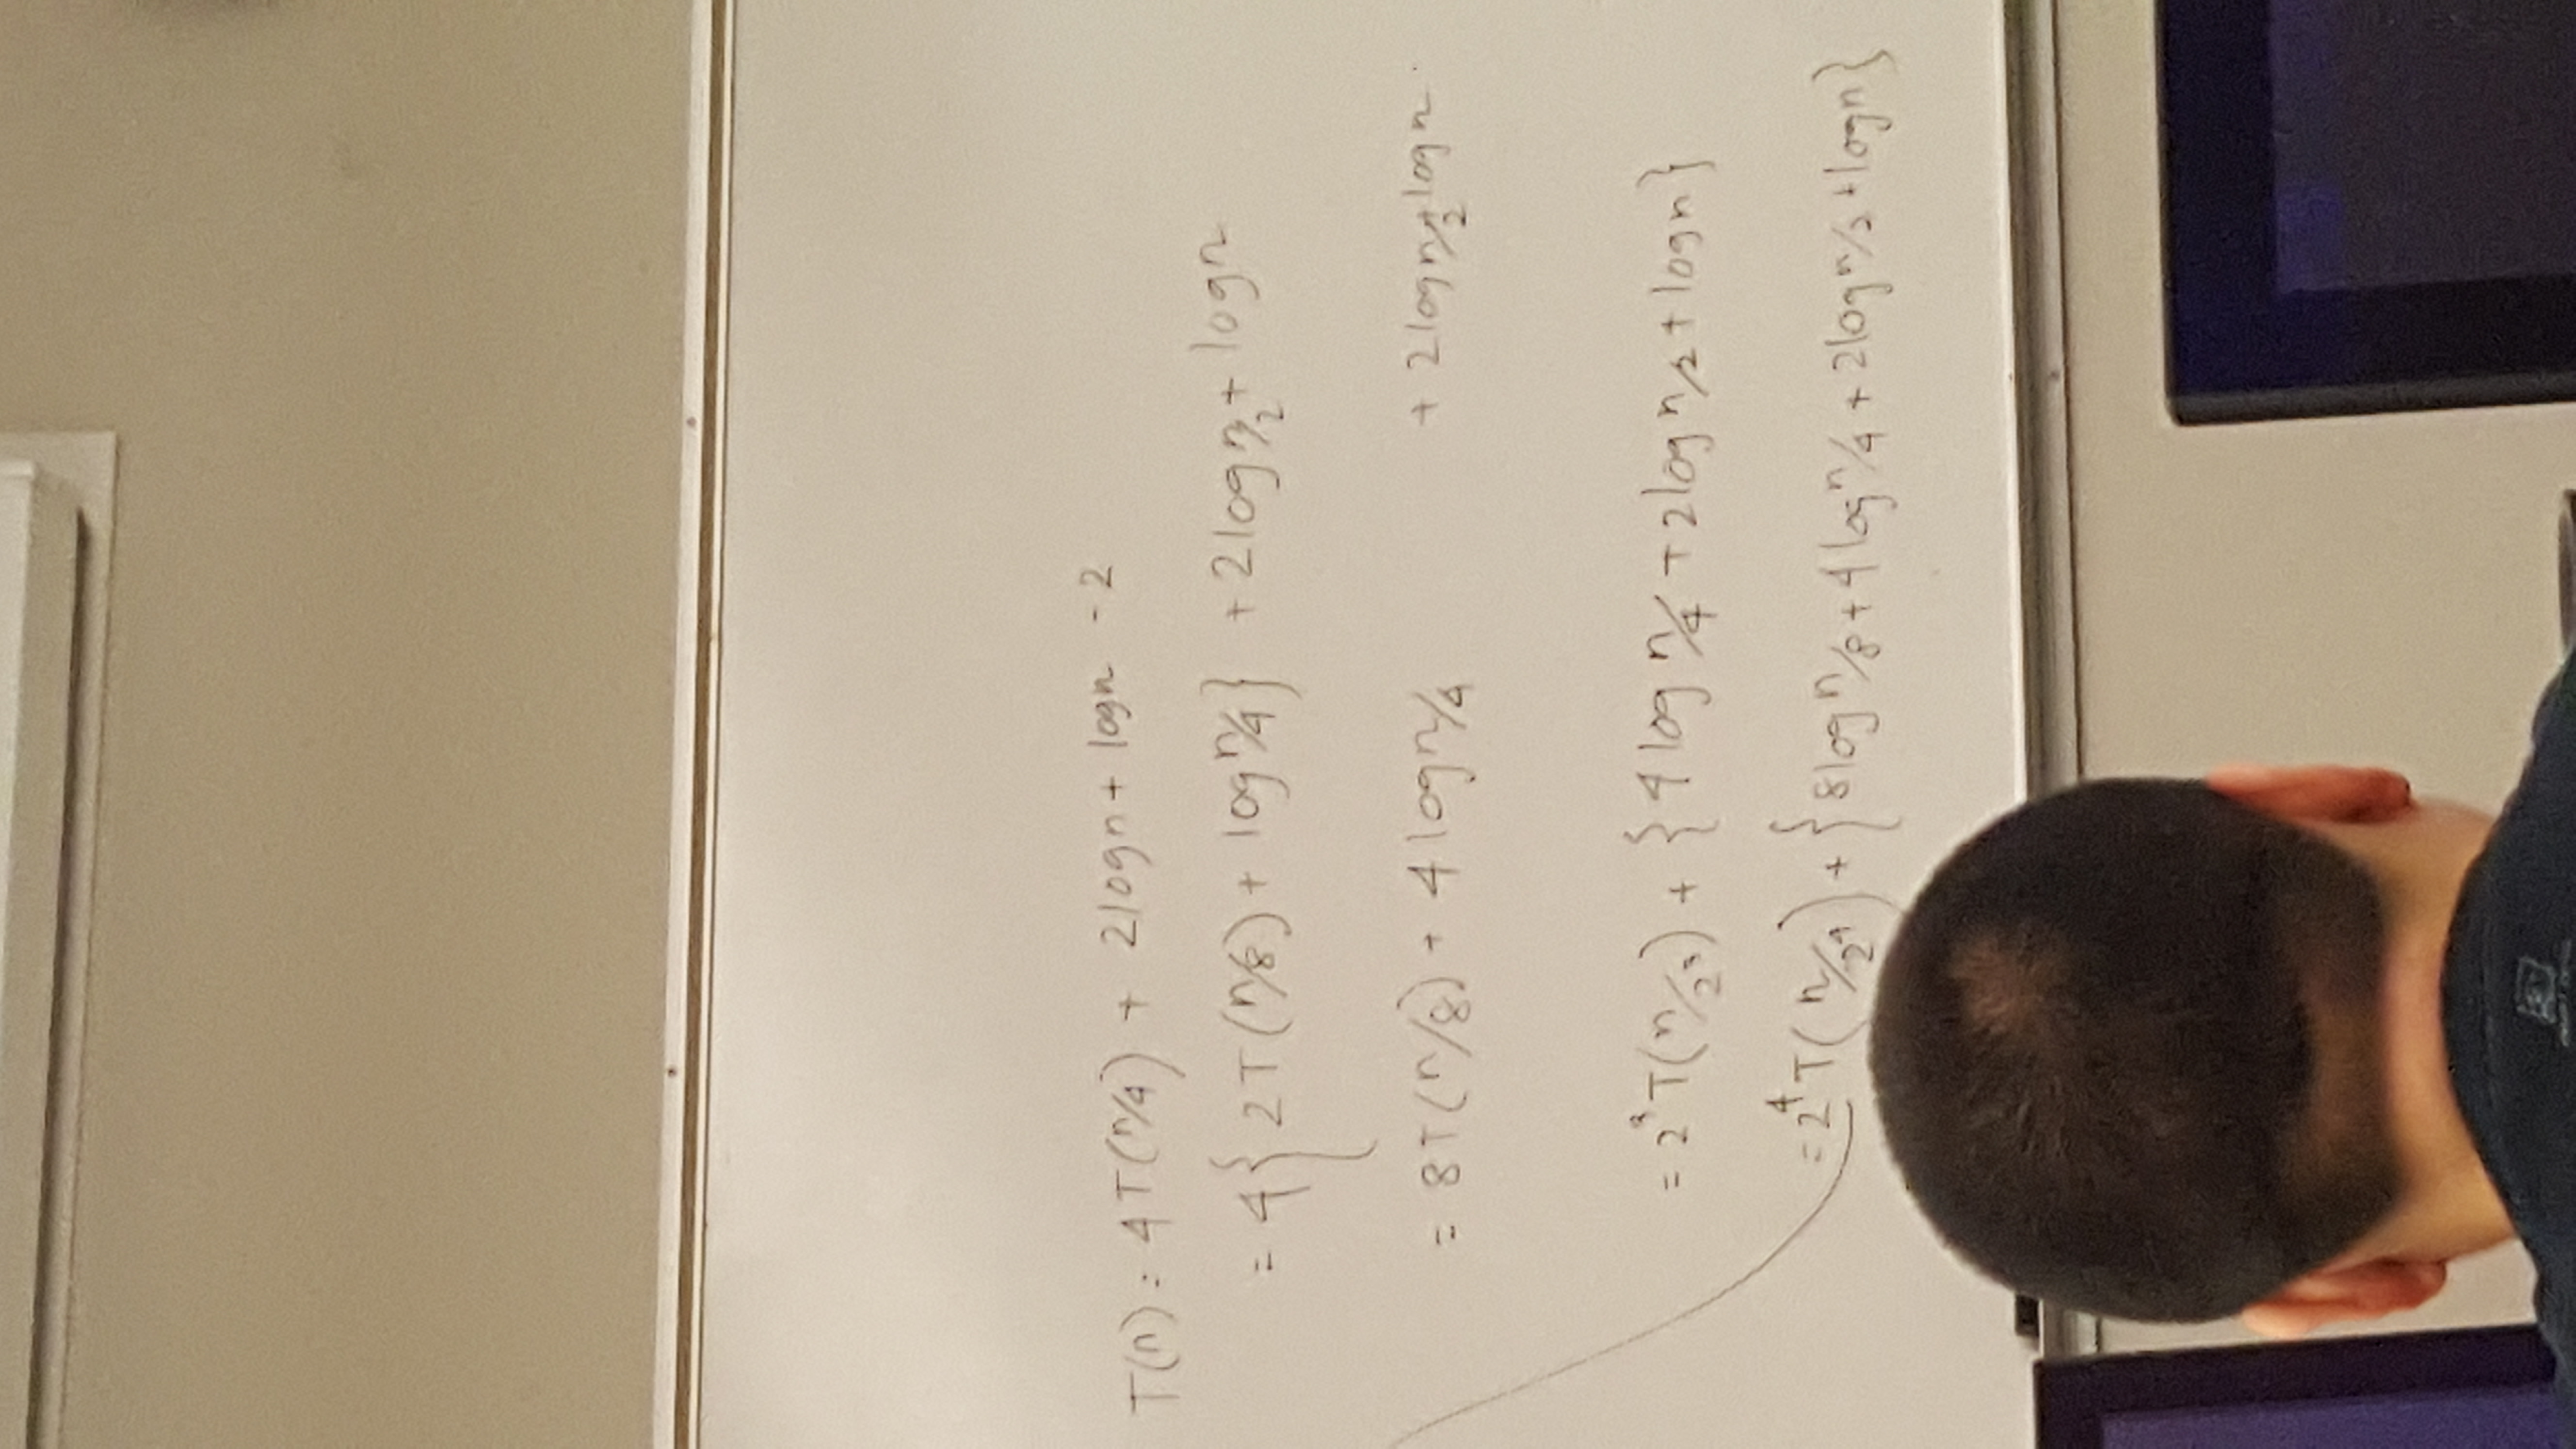 T(n) = 4T(n/4) + 2logn + logn - 2
= 4{ 2T(n/8) + log n/4 } + 2logn/2 + logn
= 8T(n/8) + 4 logn/4 + 2logn/2+logn.
= 2³T(n/2³) + {4 log n/4 + 2logn/2 + logn}
= 2⁴T(n/2⁴) + {8logn/8 + 4logn/4 + 2logn/2 + logn}